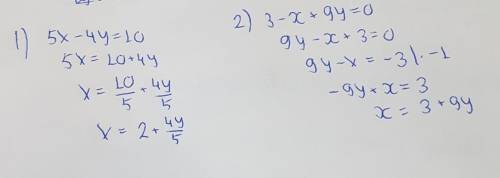 1) 5x - 4y = 10
5x = 10 + 4y
x = 10/5 + 4y/5
x = 2 + 4y/5
2) 3 - x + 9y = 0
9y - x + 3 = 0
9y - x = -3 | · -1
-9y + x = 3
x = 3 + 9y